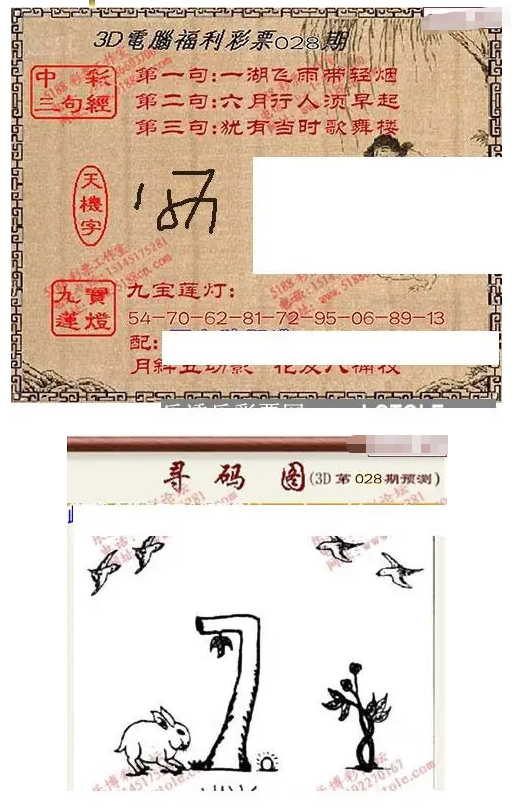 3D電腦福利彩票028期
中彩
三句經
第一句:一湖飞雨带轻烟
第二句:六月行人须早起
第三句:犹有当时歌舞楼
天機字
九寶蓮燈
九宝莲灯:
54-70-62-81-72-95-06-89-13
配:
寻码图(3D第028期预测)